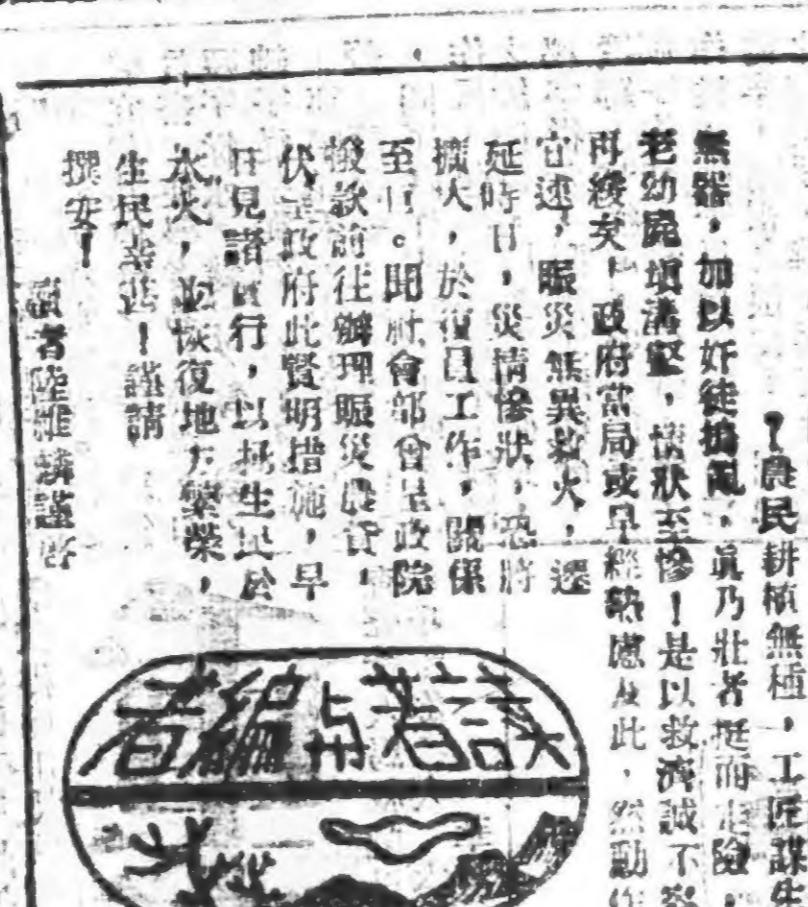 ！農民耕植無種，工匠謀生
無器，加以奸徒搗亂，眞乃壯者挺而走險，
老幼屍塡溝壑，情狀至慘！是以救濟誠不容
再緩矣，政府當局或早經熟慮及此，然動作
官述，賑災無異救火，遷
延時日，災情慘狀，恐將
擴大，於復員工作，關係
至巨。聞社會部曾呈政院
撥款前往辦理賑災農貸，
伏望政府此賢明措施，早
日見諸實行，以拯生民於
水火，並恢復地方繁榮，
生民幸甚！謹請
撰安！
讀者陸維謹啓
讀者與編者